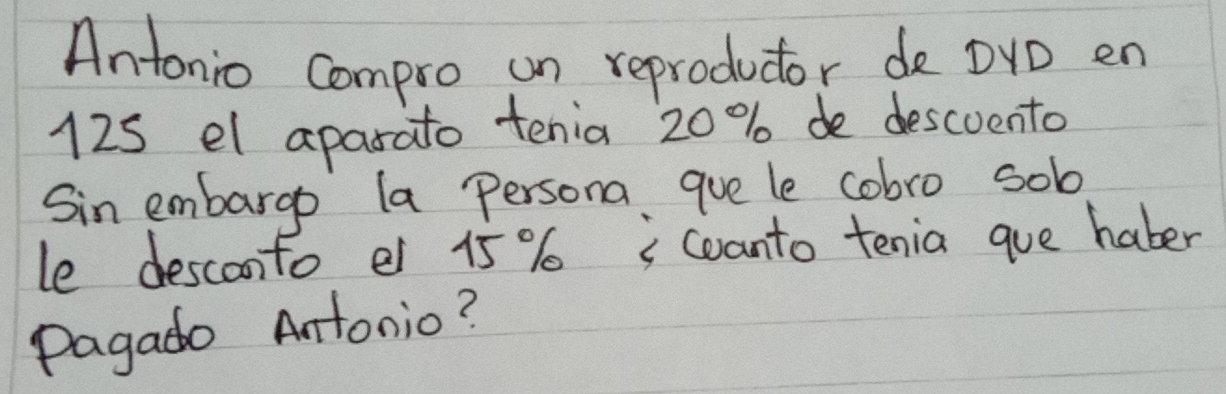 Antonio Compro un reproductor de DVD en
125 el aparato tenia 20% de descuento
Sin embargo la Persona que le cobro Solo
le desconto el 15% ¿ Cuanto tenia que haber
Pagado Antonio?